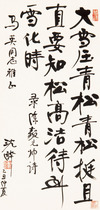 大雪压青松青松挺且
直要知松高洁待到
雪化时 录陈毅元帅诗
马英同志雅正 沈鹏